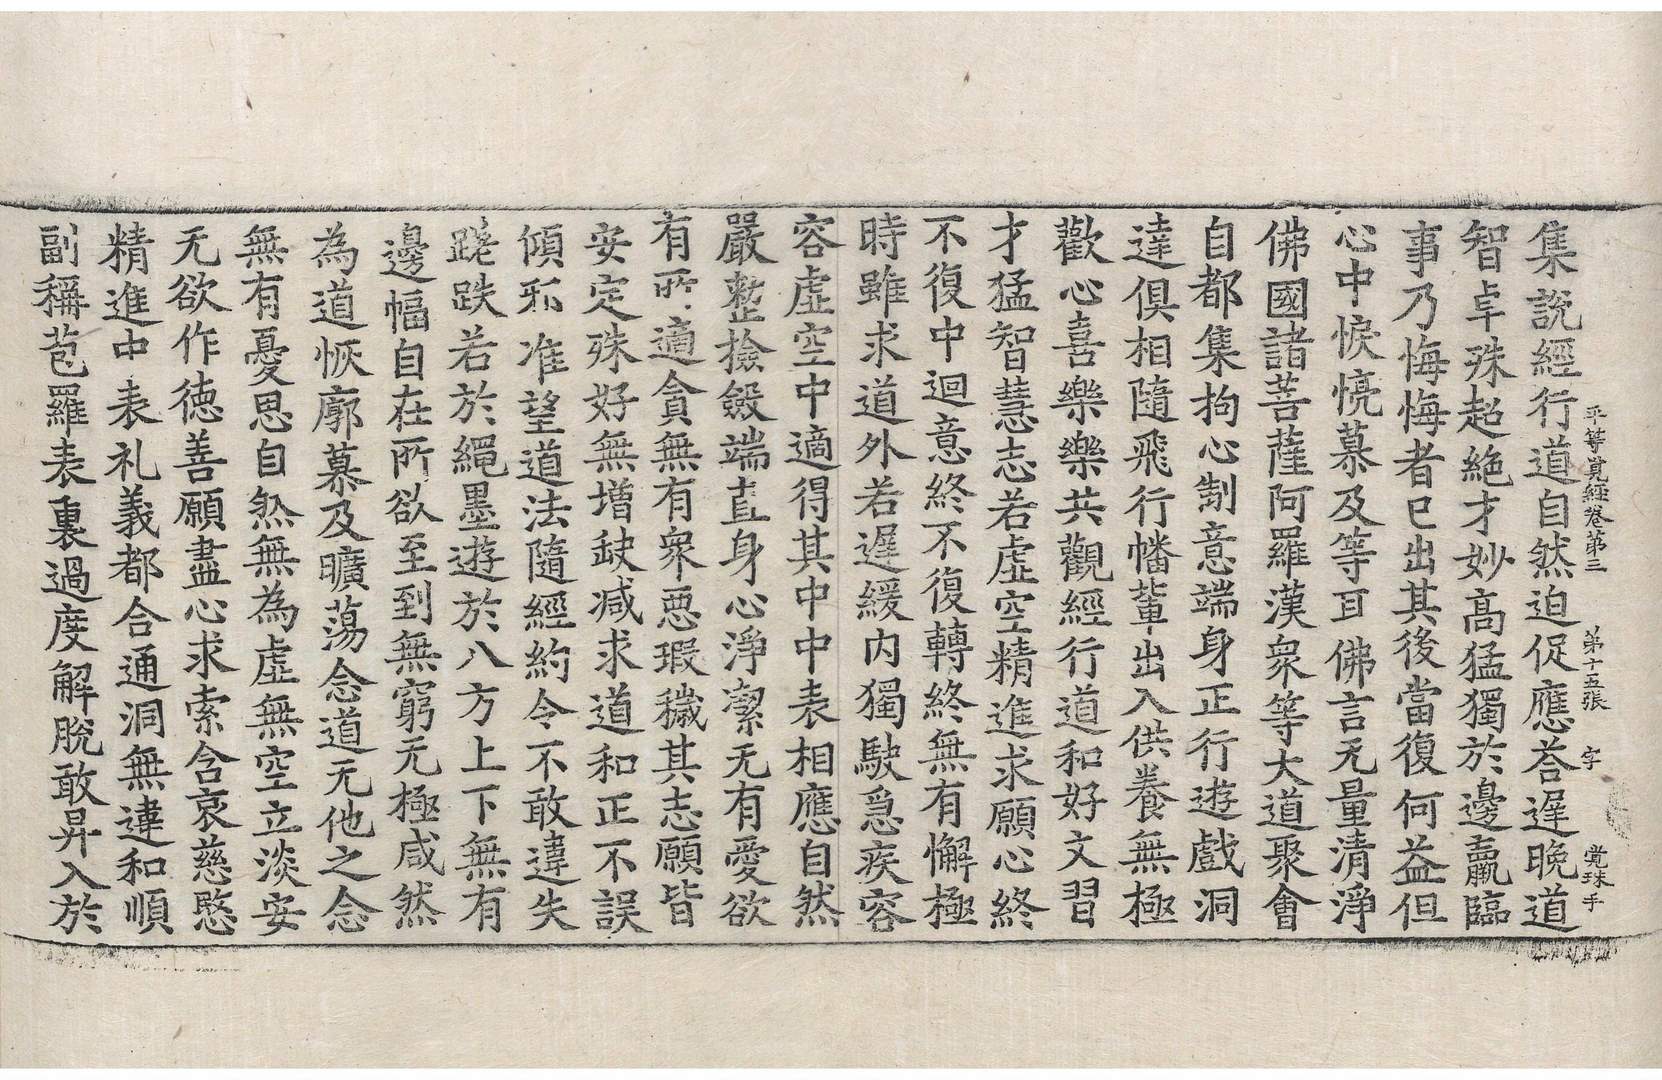 平等覺經卷第三 第十五張 字 覺珠手
集說經行道自然迫促應荅遅晚道
智卓殊超絶才妙髙猛獨於邊羸臨
事乃悔悔者已出其後當復何益但
心中悷慌慕及等耳佛言无量清淨
佛國諸菩薩阿羅漢衆等大道聚會
自都集拘心制意端身正行遊戲洞
達俱相隨飛行幡輩出入供養無極
歡心喜樂樂共觀經行道和好文習
才猛智慧志若虛空精進求願心終
不復中迴意終不復轉終無有懈極
時雖求道外若遅緩内獨駛急疾容
容虛空中適得其中中表相應自然
嚴整撿斂端直身心淨潔无有愛欲
有所適貪無有衆惡瑕穢其志願皆
安定殊好無増缺减求道和正不誤
傾邪准望道法隨經約令不敢違失
蹉跌若於繩墨遊於八方上下無有
邊幅自在所欲至到無窮无極咸然
為道恢廓慕及曠蕩念道无他之念
無有憂思自然無為虛無空立淡安
无欲作徳善願盡心求索含哀慈愍
精進中表礼義都合通洞無違和順
副稱苞羅表裏過度解脫敢昇入於